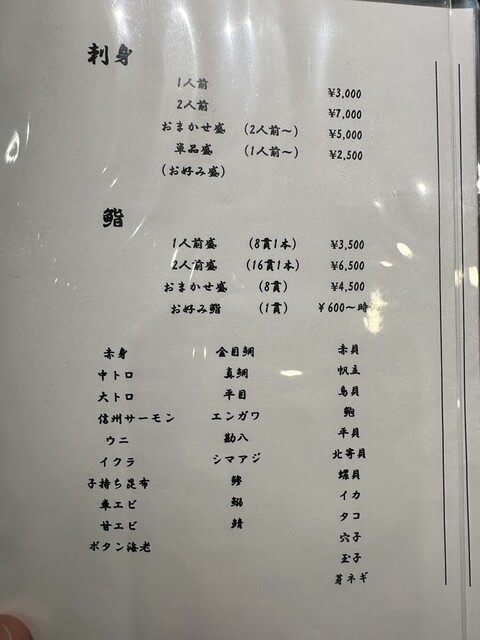 刺身
1人前 ¥3,000
2人前 ¥7,000
おまかせ盛 (2人前～) ¥5,000
単品盛 (1人前～) ¥2,500
(お好み盛)
鮨
1人前盛 (8貫1本) ¥3,500
2人前盛 (16貫1本) ¥6,500
おまかせ盛 (8貫) ¥4,500
お好み鮨 (1貫) ¥600～時
赤身
中トロ
大トロ
信州サーモン
ウニ
イクラ
子持ち昆布
車エビ
甘エビ
ボタン海老
金目鯛
真鯛
平目
エンガワ
勘八
シマアジ
鯵
鰯
鯖
赤貝
帆立
鳥貝
鮑
平貝
北寄貝
螺貝
イカ
タコ
穴子
玉子
芽ネギ